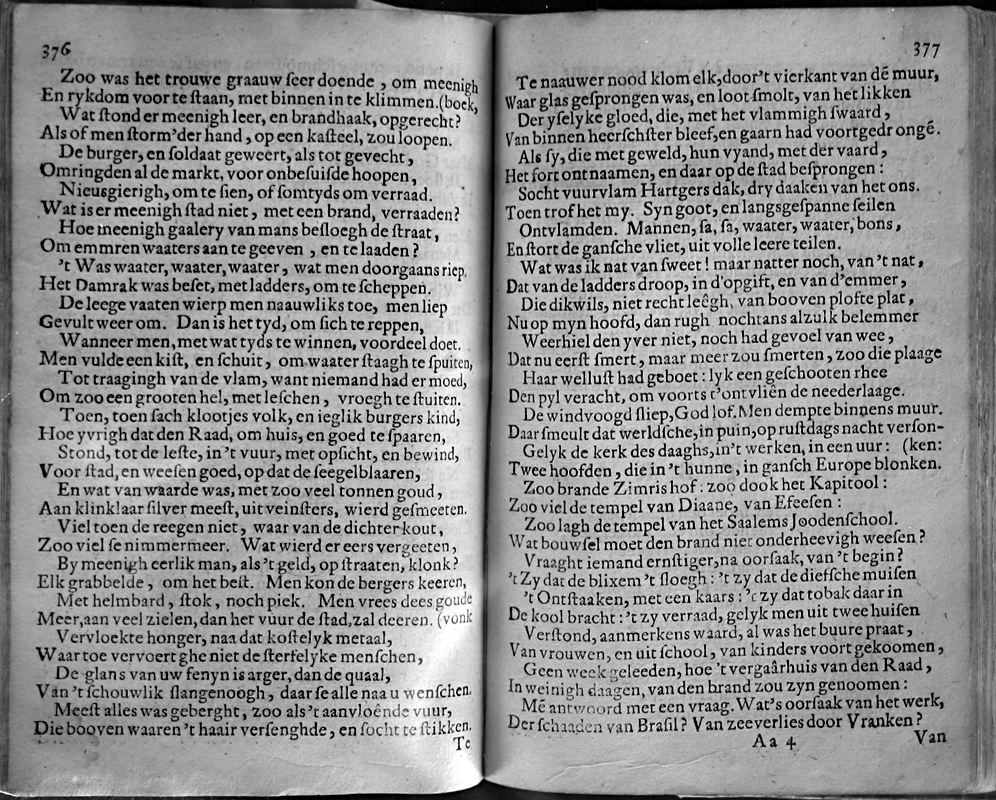 376
Zoo was het trouwe graauw ſeer doende, om meenigh
En rykdom voor te ſtaan, met binnen in te klimmen. (boek,
Wat ſtond er meenigh leer, en brandhaak, opgerecht?
Als of men ſtorm'der hand, op een kaſteel, zou loopen.
De burger, en ſoldaat geweert, als tot gevecht,
Omringden al de markt, voor onbeſuiſde hoopen,
Nieusgierigh, om te ſien, of ſomtyds om verraad.
Wat is er meenigh ſtad niet, met een brand, verraaden?
Hoe meenigh gaalery van mans beſloegh de ſtraat,
Om emmren waaters aan te geeven, en te laaden?
't Was waater, waater, waater, wat men doorgaans riep.
Het Damrak was beſet, met ladders, om te ſcheppen.
De leege vaaten wierp men naauwliks toe, men liep
Gevult weer om. Dan is het tyd, om ſich te reppen,
Wanneer men, met wat tyds te winnen, voordeel doet.
Men vulde een kiſt, en ſchuit, om waater ſtaagh te ſpuiten,
Tot traagingh van de vlam, want niemand had er moed,
Om zoo een grooten hel, met leſchen, vroegh te ſtuiten.
Toen, toen ſach klootjes volk, en ieglik burgers kind,
Hoe yvrigh dat den Raad, om huis, en goed te ſpaaren,
Stond, tot de leſte, in 't vuur, met opſicht, en bewind,
Voor ſtad, en weeſen goed, op dat de ſeegelblaaren,
En wat van waarde was, met zoo veel tonnen goud,
Aan klinklaar ſilver meeſt, uit veinſters, wierd geſmeeten.
Viel toen de reegen niet, waar van de dichter kout,
Zoo viel ſe nimmermeer. Wat wierd er eers vergeeten,
By meenigh eerlik man, als 't geld, op ſtraaten, klonk?
Elk grabbelde, om het beſt. Men kon de bergers keeren,
Met helmbard, ſtok, noch piek. Men vrees dees goude
Meer, aan veel zielen, dan het vuur de ſtad, zal deeren. (vonk
Vervloekte honger, naa dat koſtelyk metaal,
Waar toe vervoert ghe niet de ſterfelyke menſchen,
De glans van uw fenyn is arger, dan de quaal,
Van 't ſchouwlik ſlangenoogh, daar ſe alle naa u wenſchen.
Meeſt alles was geberght, zoo als 't aanvloênde vuur,
Die booven waaren 't haair verſenghde, en ſocht te ſtikken.
Te
377
Te naauwer nood klom elk, door't vierkant van dē muur,
Waar glas geſprongen was, en loot ſmolt, van het likken
Der yſelyke gloed, die, met het vlammigh ſwaard,
Van binnen heerſchſter bleef, en gaarn had voortgedrongē.
Als ſy, die met geweld, hun vyand, met der vaard,
Het fort ontnaamen, en daar op de ſtad beſprongen:
Socht vuurvlam Hartgers dak, dry daaken van het ons.
Toen trof het my. Syn goot, en langsgeſpanne ſeilen
Ontvlamden. Mannen, ſa, ſa, waater, waater, bons,
En ſtort de ganſche vliet, uit volle leere teilen.
Wat was ik nat van ſweet! maar natter noch, van 't nat,
Dat van de ladders droop, in d'opgift, en van d'emmer,
Die dikwils, niet recht leêgh, van booven plofte plat,
Nu op myn hoofd, dan rugh nochtans al zulk belemmer
Weerhiel den yver niet, noch had gevoel van wee,
Dat nu eerſt ſmert, maar meer zou ſmerten, zoo die plaage
Haar welluſt had geboet: lyk een geſchooten rhee
Den pyl veracht, om voorts t'ontvliên de neederlaage.
De windvoogd ſliep, God lof. Men dempte binnens muur.
Daar ſmeult dat werldſche, in puin, op ruſtdags nacht verſon-
Gelyk de kerk des daaghs, in't werken, in een uur: (ken:
Twee hoofden, die in 't hunne, in ganſch Europe blonken.
Zoo brande Zimris hof: zoo dook het Kapitool:
Zoo viel de tempel van Diaane, van Efeeſen:
Zoo lagh de tempel van het Saalems Joodenſchool.
Wat bouwſel moet den brand niet onderheevigh weeſen?
Vraaght iemand ernſtiger, na oorſaak, van 't begin?
't Zy dat de blixem 't ſloegh: 't zy dat de diefſche muiſen
't Ontſtaaken, met een kaars: 't zy dat tobak daar in
De kool bracht: 't zy verraad, gelyk men uit twee huiſen
Verſtond, aanmerkens waard, al was het buure praat,
Van vrouwen, en uit ſchool, van kinders voort gekoomen,
Geen week geleeden, hoe 't vergaârhuis van den Raad,
In weinigh daagen, van den brand zou zyn genoomen:
Mē antwoord met een vraag. Wat's oorſaak van het werk,
Der ſchaaden van Braſil? Van zeeverlies door Vranken?
Aa 4 Van